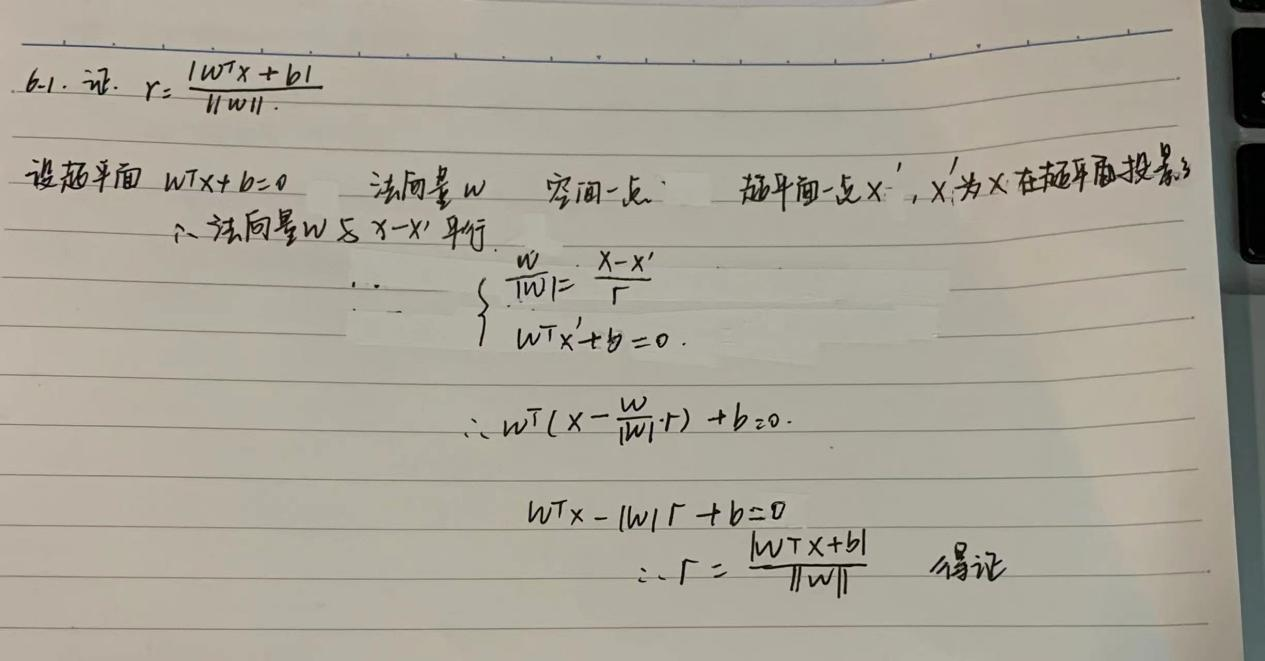 6-1. 证. r = |wᵀx + b| / ||w||.
设超平面 wᵀx + b = 0 法向量 w 空间一点 超平面一点 x′, x′为 x 在超平面投影
∴ 法向量 w 与 x-x′ 平行.
{ w / |w| = (x-x′) / r
wᵀx′ + b = 0.
∴ wᵀ(x - w/|w| · r) + b = 0.
wᵀx - |w| r + b = 0
∴ r = |wᵀx + b| / ||w|| 得证